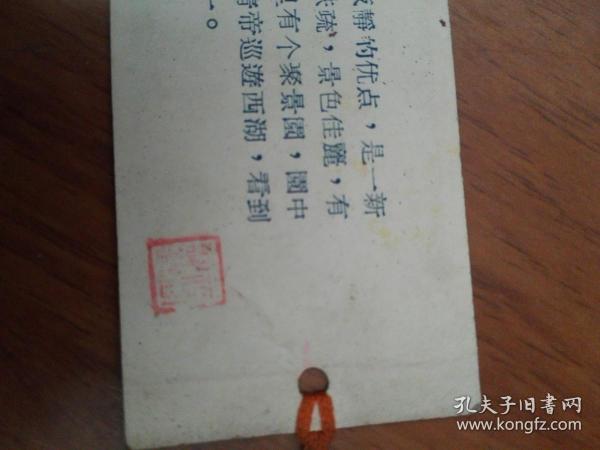 靜的优点，是一新
疏，景色佳麗，有
有个聚景園，園中
帝巡遊西湖，看到
一。
孔夫子旧書网
www.kongfz.com